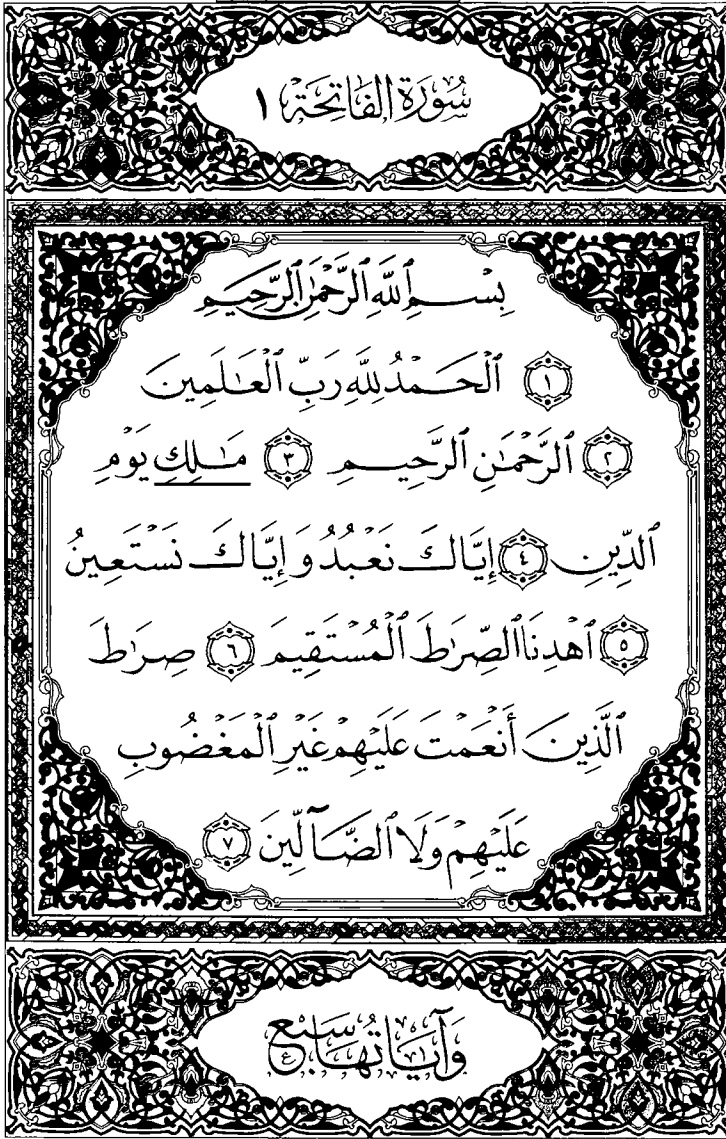 سُورَةُ الفَاتِحَة ١
بِسْمِ ٱللَّهِ ٱلرَّحْمَٰنِ ٱلرَّحِيمِ
١ ٱلْحَمْدُ لِلَّهِ رَبِّ ٱلْعَٰلَمِينَ
٢ ٱلرَّحْمَٰنِ ٱلرَّحِيمِ ٣ مَٰلِكِ يَوْمِ
ٱلدِّينِ ٤ إِيَّاكَ نَعْبُدُ وَإِيَّاكَ نَسْتَعِينُ
٥ ٱهْدِنَا ٱلصِّرَٰطَ ٱلْمُسْتَقِيمَ ٦ صِرَٰطَ
ٱلَّذِينَ أَنْعَمْتَ عَلَيْهِمْ غَيْرِ ٱلْمَغْضُوبِ
عَلَيْهِمْ وَلَا ٱلضَّآلِّينَ ٧
وَآيَاتُهَا سَبْعٌ